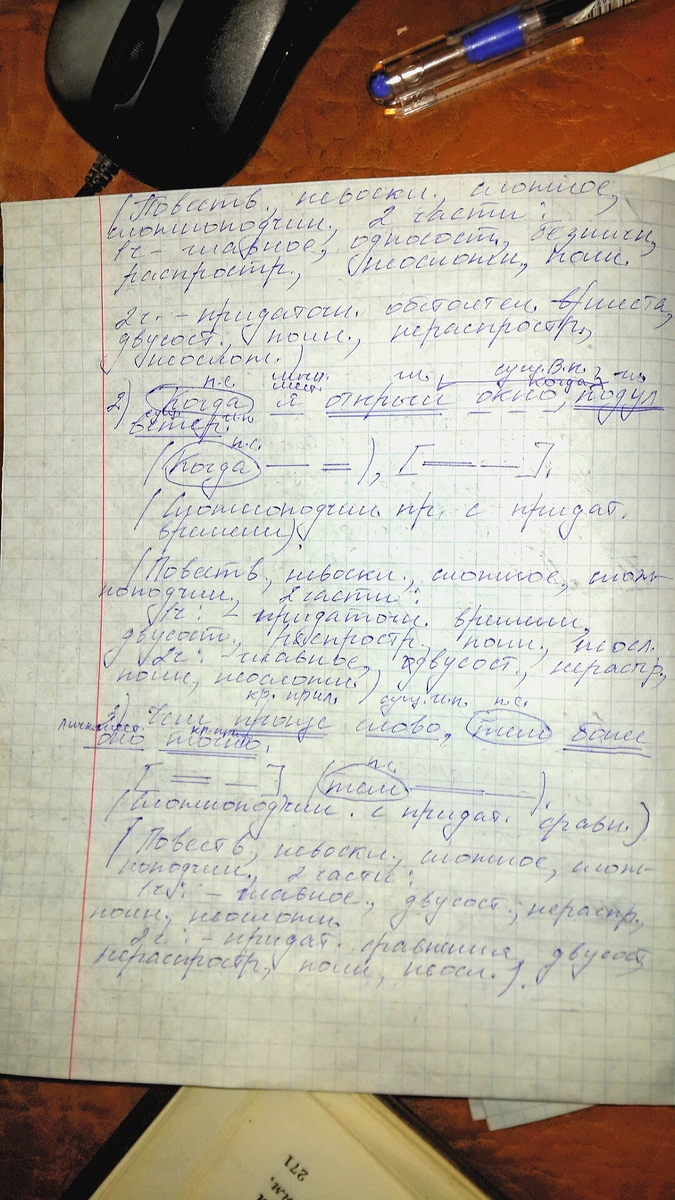 (Повеств., невоскл., сложное,
сложноподчин., 2 части:
1ч – главное, односост., безличн.,
распростр., неосложн., полн.
2ч. – придаточн. обстоятел. места,
двусост., полн., нераспростр.,
неослож.)
п.с. личн. мест. гл. сущ. В.п. когда? гл.
2) Когда я открыл окно, подул
сущ. и.п.
ветер.
п.с.
(Когда — =), [= —].
(Сложноподчин. пр. с придат.
времени).
(Повеств., невоскл., сложное, слож-
ноподчин., 2 части:
1ч: – придаточн. времени,
двусост., распростр., полн., неосл.
2ч: – главное, двусост., нераспр.,
полн., неосложн.)
кр. прил. сущ. и.п. п.с.
3) Чем проще слово, тем более
личн. мест. кр. пр.
оно точно.
п.с.
[= —] (тем = —).
(Сложноподчин. с придат. сравн.)
(Повеств., невоскл., сложное, слож-
ноподчин., 2 части:
1ч: – главное, двусост., нераспр.,
полн., неосложн.
2ч: – придат. сравнения, двусост.,
нераспростр., полн., неосл.).
271